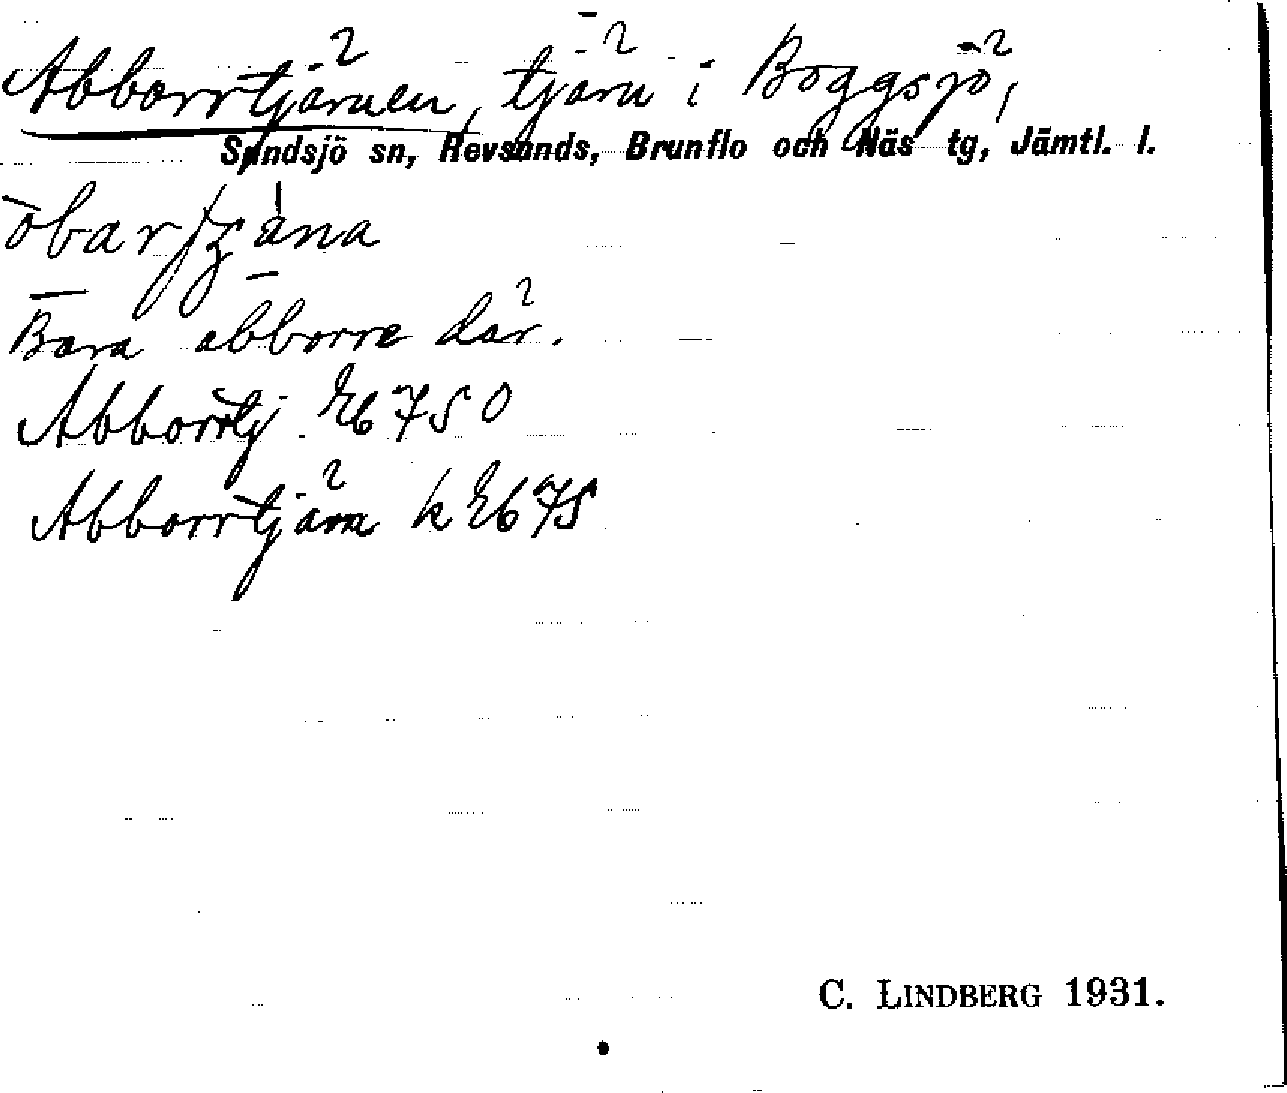 Abborrtjärnen, tjärn i Boggsjö,
Sundsjö sn, Revsunds, Brunflo och Näs tg, Jämtl. l.
Bara abborre där.
Abborrtj. Eb 75 0
Abborrtjärn k Eb 75
C. LINDBERG 1931.